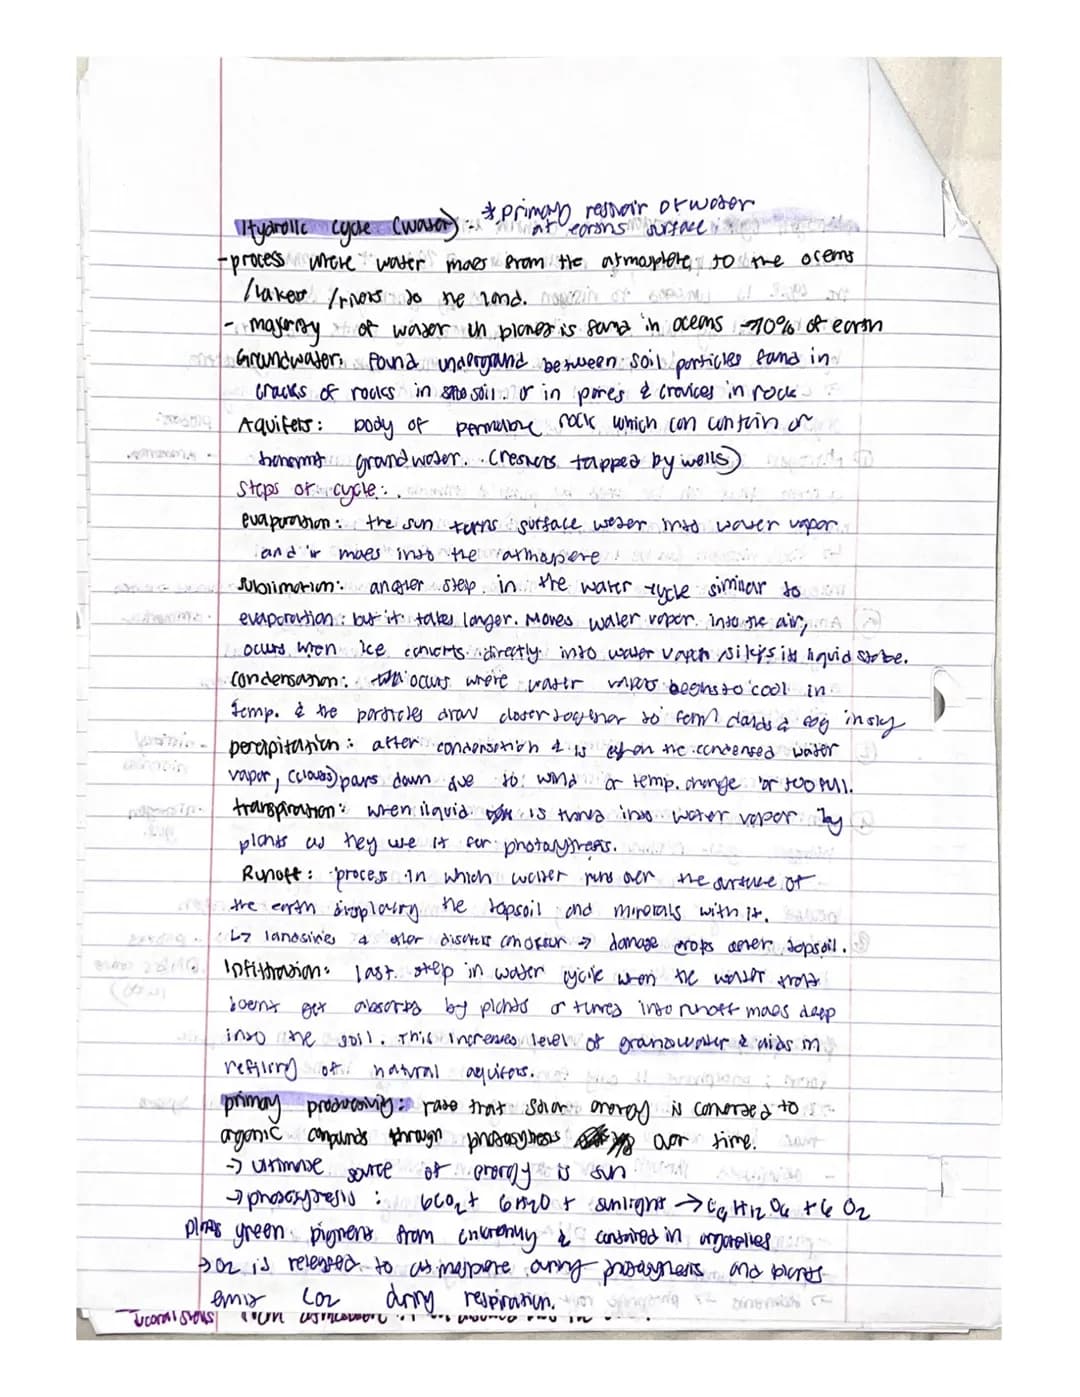 Hydrolic cycle (water) :- *primary resivoir of water
at earths surface
- process where water moves from the atmosphere, to the oceans
/lakes /rivers to the land.
- majority of water on planet is found in oceans → 70% of earth
Groundwater: found underground between soil particles found in
cracks of rocks in soil. or in pores & crevices in rock
Aquifers: body of permeable rock which can contain or
transmit groundwater. (reservoirs tapped by wells)
Steps of cycle:
evaporation: the sun turns surface water into water vapor
and it moves into the
sublimation: another step in the water cycle similar to
evaporation: but it takes longer. Moves water vapor into the air,
occurs when ice converts directly into water vapor skips its liquid state.
condensation: occurs where water vapors begins to cool in
temp. & the particles draw closer together to form clouds & fog in sky
percipitation: after condensation & is when the condensed water
vapor, (clouds) pours down due to wind or temp. change or too full.
transpiration: when liquid is turned into water vapor by
plants as they use it for photosynthesis.
Runoff: process in which water runs over the surface of
the earth displacing the topsoil and minerals with it.
↳ landslides & other disaters can occur → damage crops after topsoil.
Infiltration: last step in water cycle when the water that
doent get absorbed by plants or turned into runoff moves deep
into the soil. This increases level of groundwater & aids in
refilling of natural aquifers.
primary productivity: rate that solar energy is converted to
organic compunds through photosynthesis over time.
→ ultimate source of energy is sun
→ photosynthesis : 6CO2 + 6H2O + sunlight → C6H12O6 + 6O2
green pigment from & contained in organelles
→ O2 is released to atmosphere during photosynthesis and plants
emit CO2 during respiration.